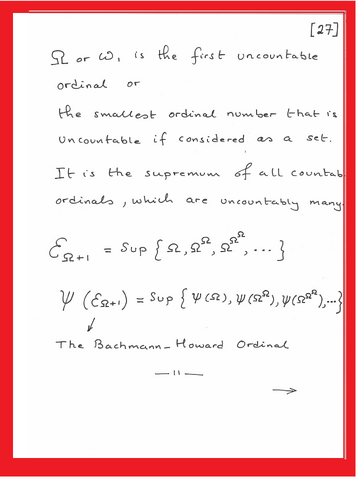 [27]
Ω or ω₁ is the first uncountable
ordinal or
the smallest ordinal number that is
uncountable if considered as a set.
It is the supremum of all countab
ordinals, which are uncountably many.
ε_{Ω+1} = Sup { Ω, Ω^Ω, Ω^{Ω^Ω}, ... }
ψ (ε_{Ω+1}) = Sup { ψ(Ω), ψ(Ω^Ω), ψ(Ω^{Ω^Ω}), ... }
↙
The Bachmann-Howard Ordinal
— 11 —
→